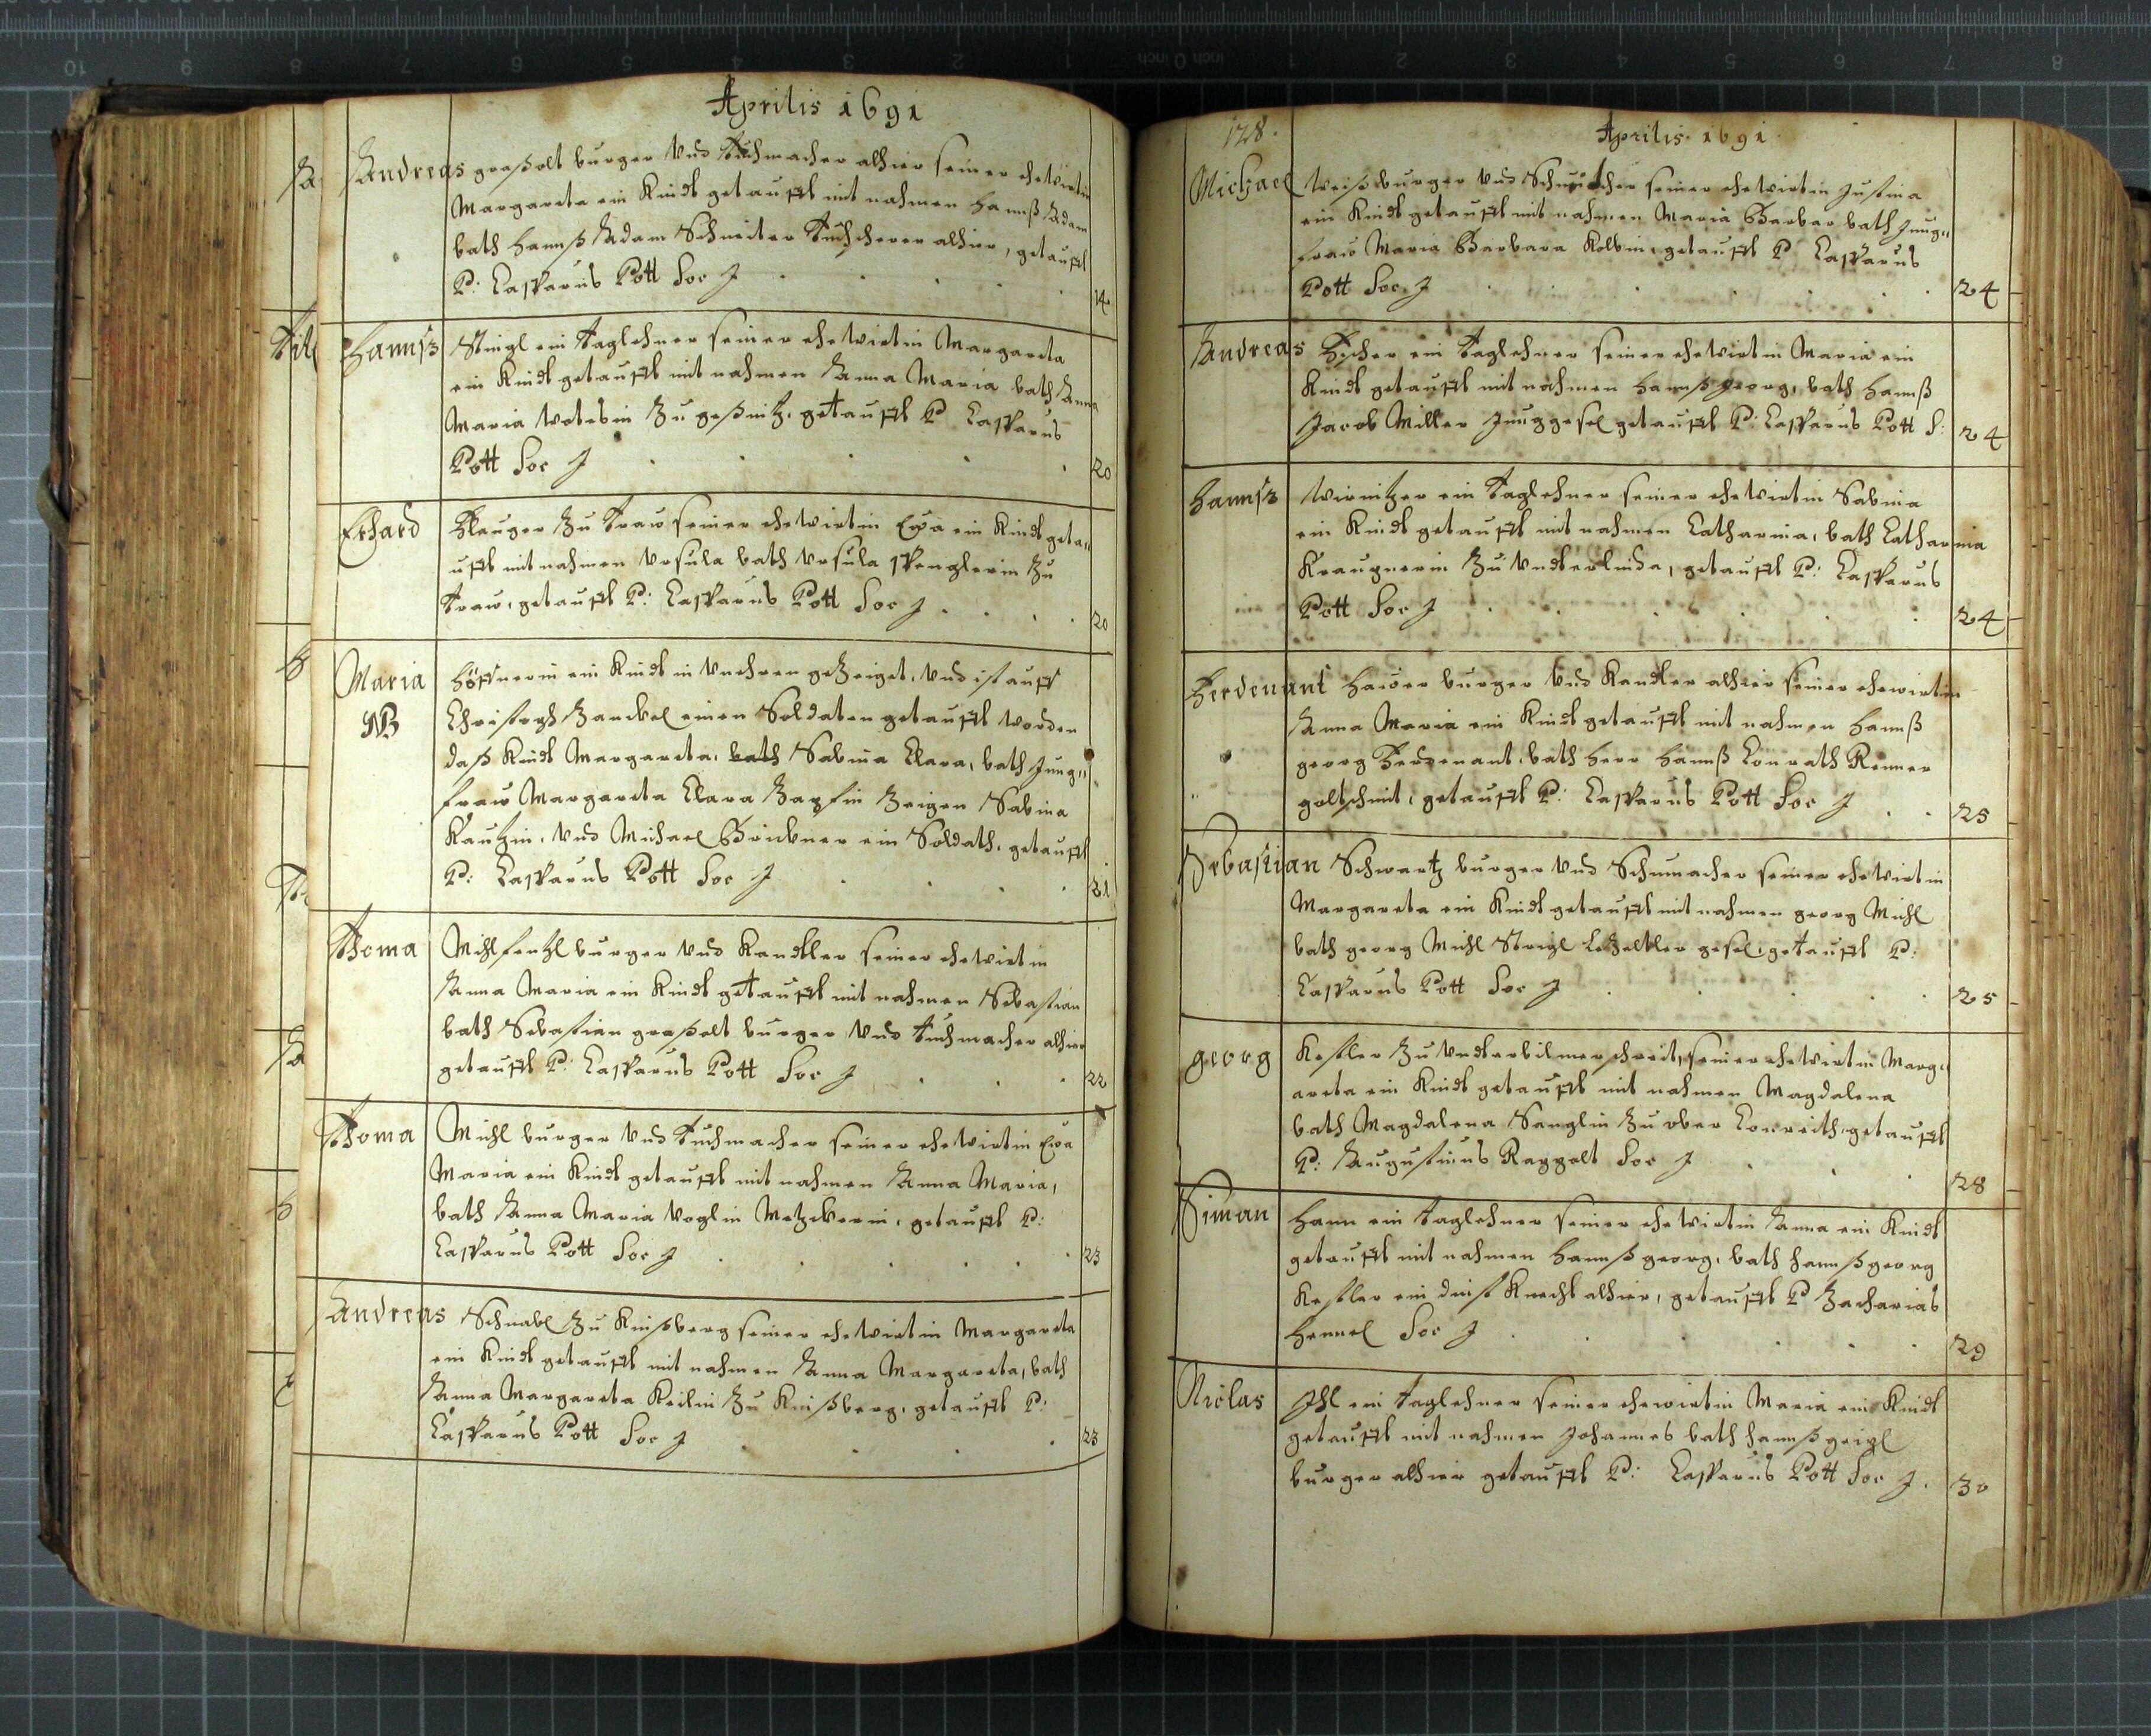 Aprilis 1691
Andreas graßolt burger vnd tuchmacher alhier seiner ehewirtin
Margareta ein Kindt getaufft mit nahmen hannß Adam
bath hannß Adam Schneiter tuchscherer alhier, getaufft
P: Casparus Pott Soc J 14
Hannß Stingl ein taglehner seiner ehewirtin Margareta
ein Kindt getaufft mit nahmen Anna Maria bath Anna
Maria zu getaufft P Casparus
Pott Soc J 20
Erhard zu traw seiner ehewirtin Eva ein Kindt geta„
ufft mit nahmen Vrsula bath Vrsula spenglerin zu
traw, getaufft P: Casparus Pott Soc J 20
Maria höffnerin ein Kindt in vnehren gezeiget, vnd ist auff
NB Christoph Zanckel einen Soldaten getaufft worden
daß Kindt Margareta, bath Sabina Clara, bath Jung„
fraw Margareta Clara Zeigen Sabina
Kautzin, vnd Michael Brickner ein Soldath, getaufft
P: Casparus Pott Soc J 21
Thoma burger vnd Kandler seiner ehewirtin
Anna Maria ein Kindt getaufft mit nahmen Sebastian
bath Sebastian graßolt burger vnd tuchmacher alhier
getaufft P: Casparus Pott Soc J 22
Thoma Michl burger vnd tuchmacher seiner ehewirtin Eva
Maria ein Kindt getaufft mit nahmen Anna Maria,
bath Anna Maria Voglin Metzckerin, getaufft P:
Casparus Pott Soc J 23
Andreas Schnabl zu Kinßberg seiner ehewirtin Margareta
ein Kindt getaufft mit nahmen Anna Margareta, bath
Anna Margareta Keilin zu Kinßberg, getaufft P:
Casparus Pott Soc J 23
128.
Aprilis. 1691
Michael Weiß burger vnd seiner ehewirtin Justina
ein Kindt getaufft mit nahmen Maria Barbar bath Jung„
fraw Maria Barbara Kolbin, getaufft P Casparus
Pott Soc. J 24
Andreas ein taglehner seiner ehewirtin Maria ein
Kindt getaufft mit nahmen hannß georg, bath hannß
Jacob Miller Junggesel getaufft P: Casparus Pott S: 24
hannß Wirnitzer ein taglehner seiner ehewirtin Sabina
ein Kindt getaufft mit nahmen Catharina, bath Catharina
zu vndterlinda, getaufft P: Casparus
Pott Soc J 24
Ferdenant burger vnd Kandler alhier seiner ehewirtin
Anna Maria ein Kindt getaufft mit nahmen hannß
georg Ferdenant, bath herr hannß Conrath Renner
goltschmit, getaufft P: Casparus Pott Soc J 25
Sebastian Schwartz burger vnd Schumacher seiner ehewirtin
Margareta ein Kindt getaufft mit nahmen georg Michl
bath georg Michl gesel, getaufft P:
Casparus Pott Soc J 25
georg Kestler zu seiner ehewirtin Marg„
areta ein Kindt getaufft mit nahmen Magdalena
bath Magdalena Sanglin zu ober getaufft
P: Augustinus Raggolt Soc J 28
Siman hann ein taglehner seiner ehewirtin Anna ein Kindt
getaufft mit nahmen hannß georg, bath hannß georg
Kestler ein dinst Knecht alhier, getaufft P Zacharias
Hennel Soc J 29
Niclas Ihl ein taglehner seiner ehewirtin Maria ein Kindt
getaufft mit nahmen Johannes bath hannß geigl
burger alhier getaufft P: Casparus Pott Soc J. 30